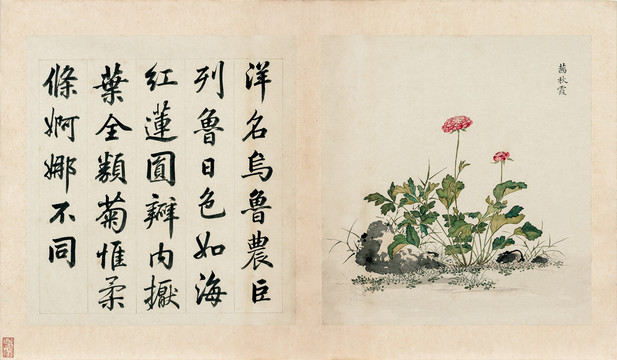 茜秋霞
洋名烏魯農臣
列魯日色如海
紅蓮圓瓣內擫
葉全類菊惟柔
條婀娜不同